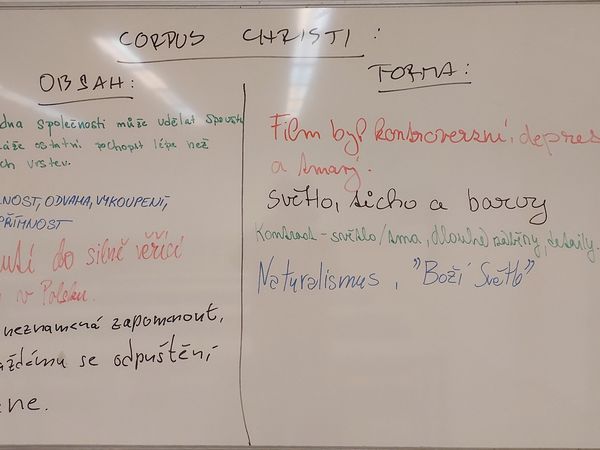 CORPUS CHRISTI:
OBSAH:
dna společnosti může udělat spoustu
áže ostatní pochopit lépe než
ch vrstev.
LNOST, ODVAHA, VYKOUPENÍ,
PŘÍMNOST
do silně věřící
v Polsku.
neznamená zapomenout,
aždému se odpuštění
ene.
FORMA:
Film byl kontroverzní, depres
a tmavý.
světlo, ticho a barvy
Kontrast - světlo/tma, dlouhé záběry, detaily.
Naturalismus, "Boží světlo"